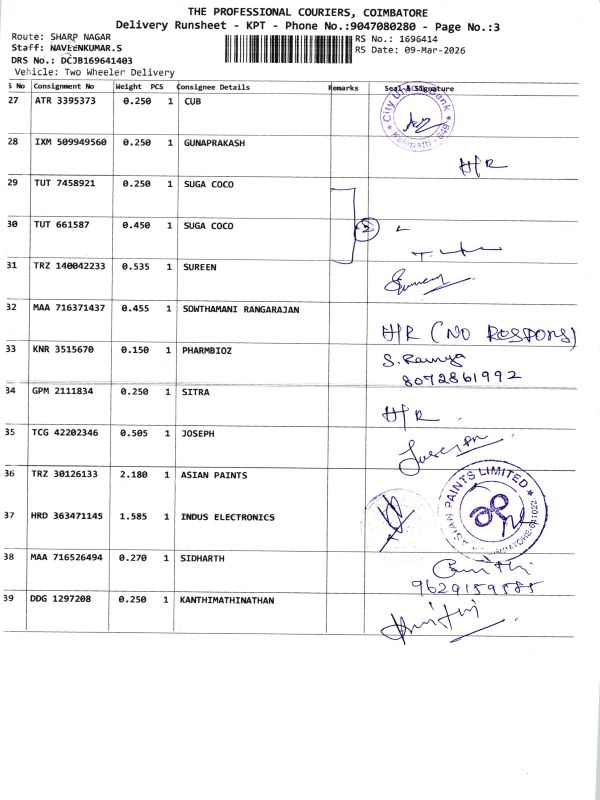 THE PROFESSIONAL COURIERS, COIMBATORE
Delivery Runsheet - KPT - Phone No.:9047080280 - Page No.:3
Route: SHARP NAGAR
RS No.: 1696414
Staff: NAVEENKUMAR.S
RS Date: 09-Mar-2026
DRS No.: DCJB169641403
Vehicle: Two Wheeler Delivery
S No Consignment No Weight PCS Consignee Details Remarks Seal & Signature
27 ATR 3395373 0.250 1 CUB
City Union Bank
Kalapatti
28 IXM 509949560 0.250 1 GUNAPRAKASH
H/R
29 TUT 7458921 0.250 1 SUGA COCO
2
30 TUT 661587 0.450 1 SUGA COCO
31 TRZ 140042233 0.535 1 SUREEN
32 MAA 716371437 0.455 1 SOWTHAMANI RANGARAJAN
H/R (NO RESPONS)
33 KNR 3515670 0.150 1 PHARMBIOZ
S. Ramya
8072861992
34 GPM 2111834 0.250 1 SITRA
H/R
35 TCG 42202346 0.505 1 JOSEPH
36 TRZ 30126133 2.180 1 ASIAN PAINTS
ASIAN PAINTS LIMITED
37 HRD 363471145 1.585 1 INDUS ELECTRONICS
38 MAA 716526494 0.270 1 SIDHARTH
9629159585
39 DDG 1297208 0.250 1 KANTHIMATHINATHAN